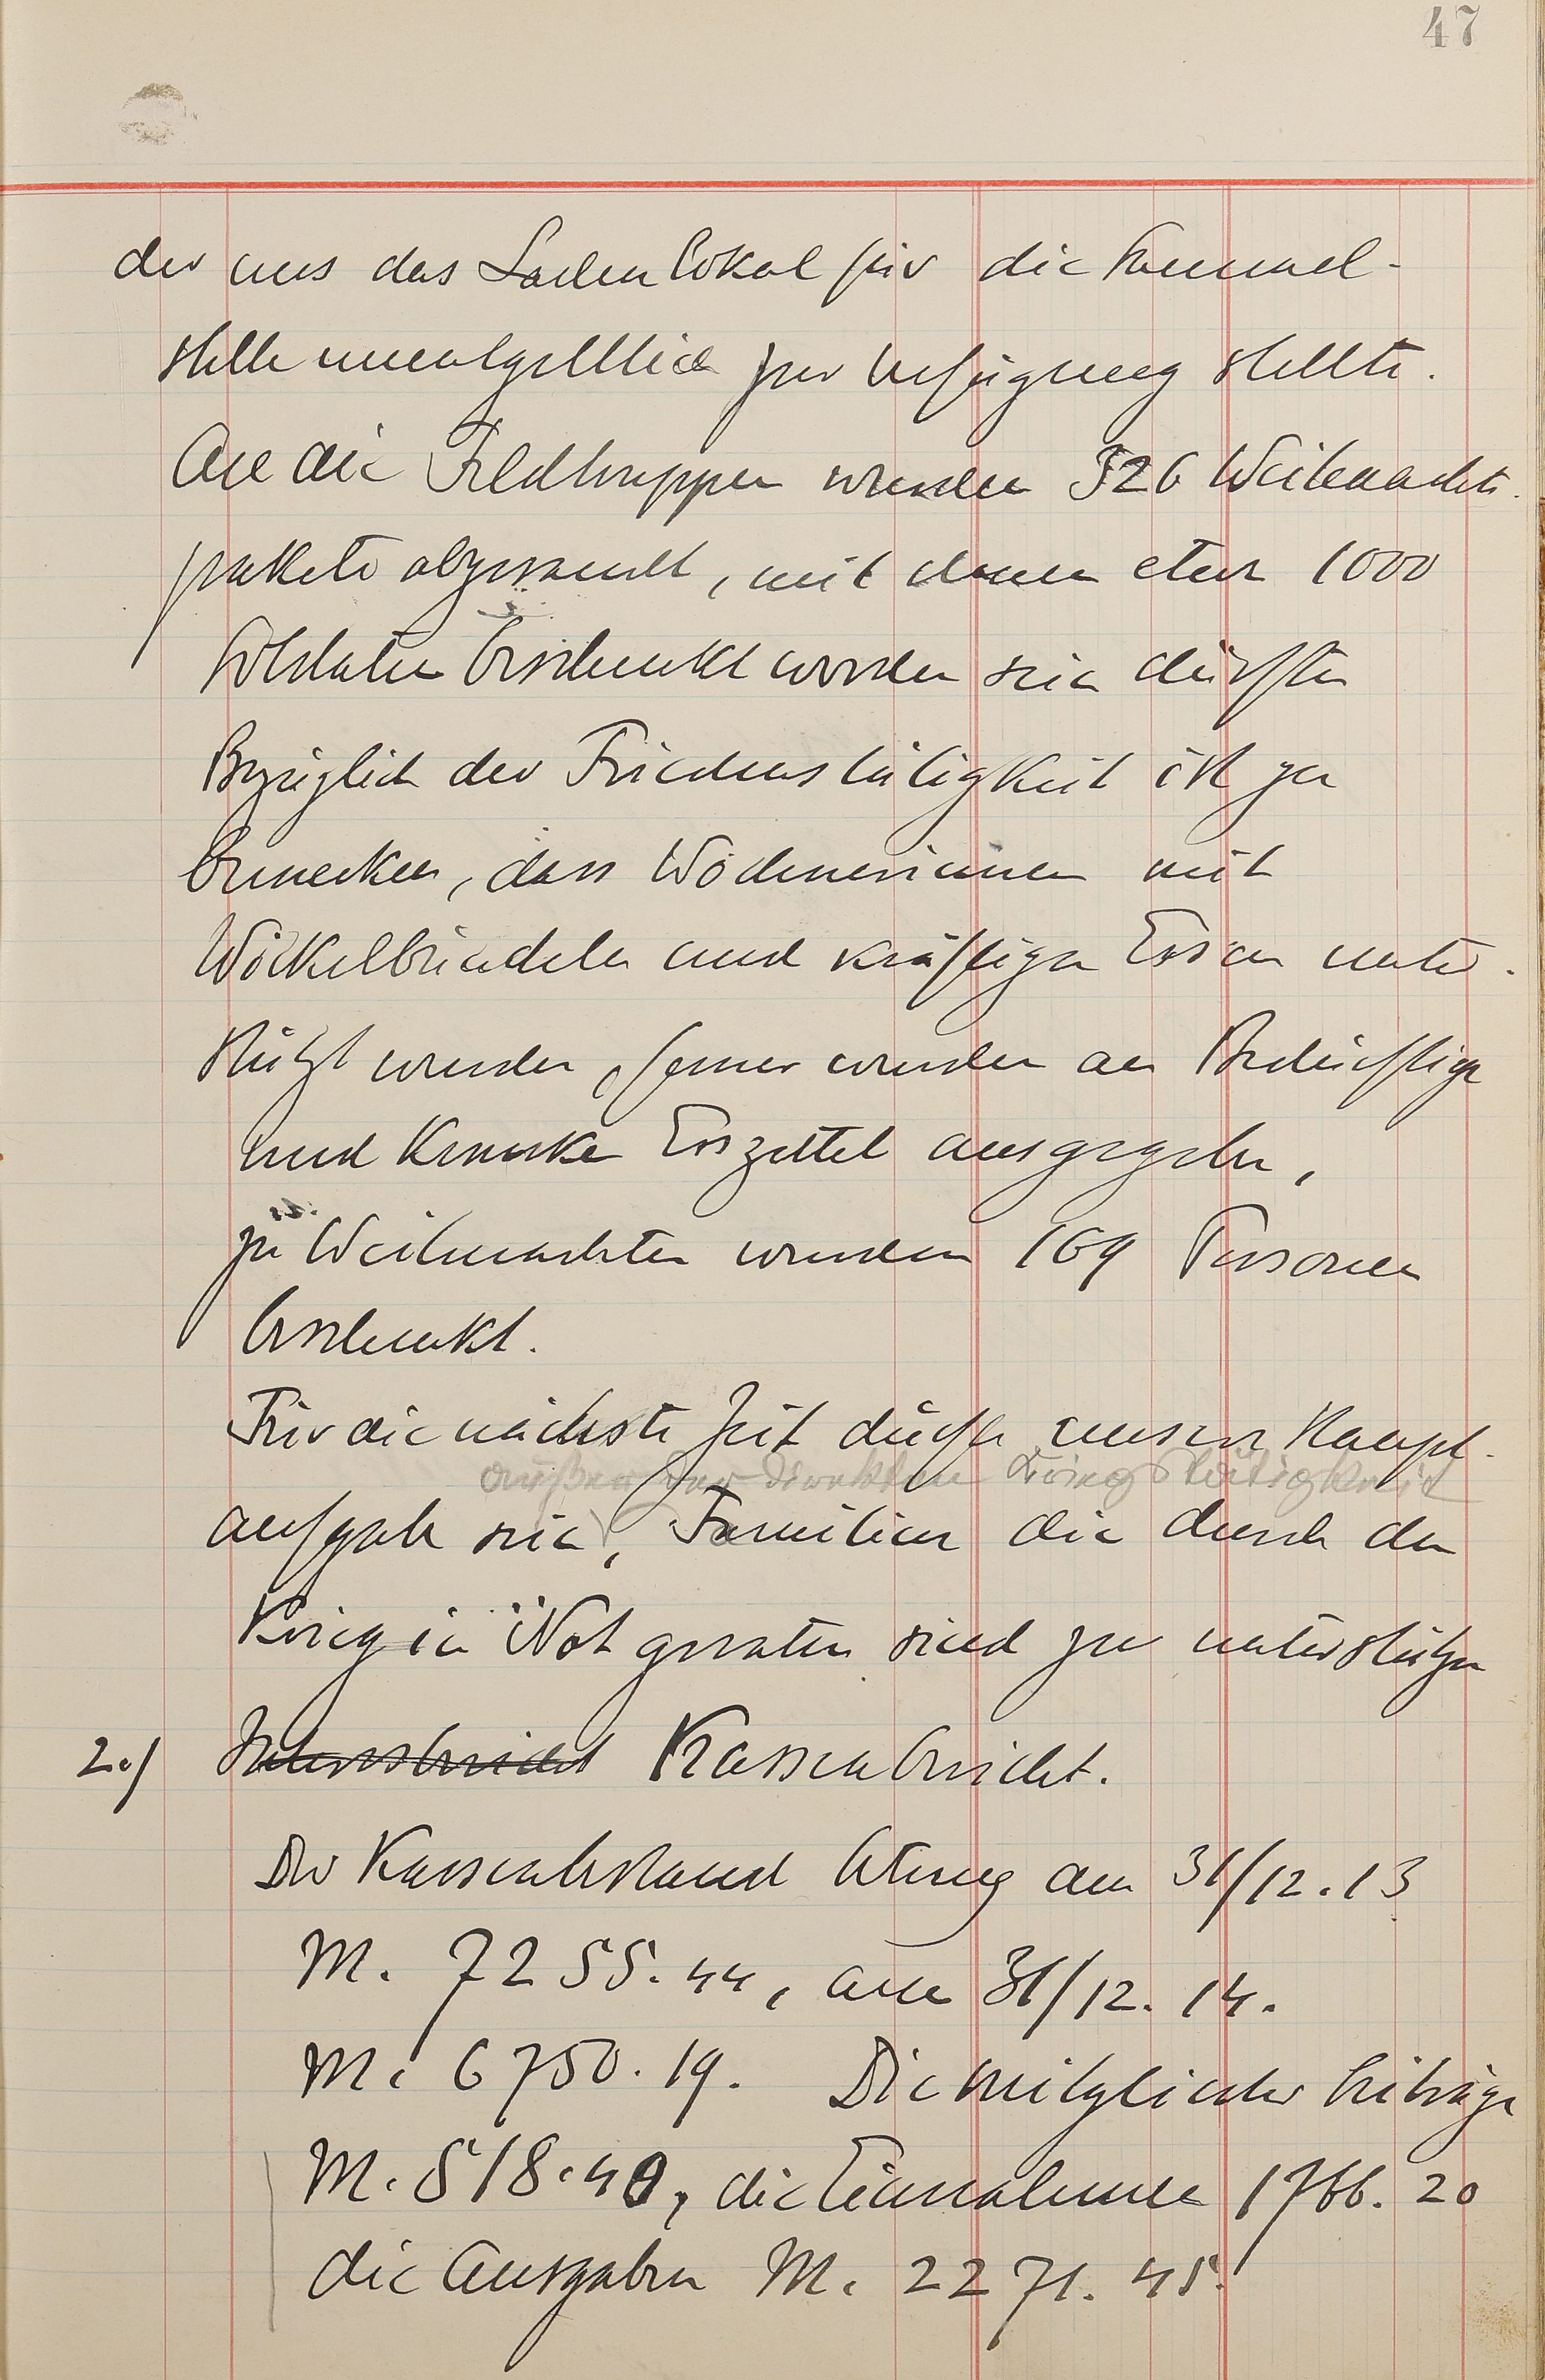 47
der uns das Laden lokal für die Sammel-
stelle unentgeltlich zur Verfügung stellte.
An die Feldtruppen wurden 526 Weihnachts-
pakete abgesandt, mit denen etwa 1000
Soldaten beschenkt worden sein dürften
Bezüglich der Friedenstätigkeit ist zu
bemerken, dass Wöchnerinnen mit
Wickelbündeln und kräftigen Essen unter-
stützt wurden, ferner wurden an Bedürftige
und Kranke Esszettel ausgegeben,
zu Weihnachten wurden 169 Personen
beschenkt.
Für die nächste Zeit dürfte unsere Haupt-
außer der direkten Kriegstätigkeit
aufgabe sein, Familien die durch den
Krieg in Not geraten sind zu unterstützen
2.) Jahresbericht Kassenbericht.
Der Kassenbestand betrug am 31/12.13
M. 7255.44, am 31/12.14.
M. 6750.19. Die Mitglieder beiträge
M. 518.40, die Einnahmen 1766.20
die Ausgaben M. 2271.45.